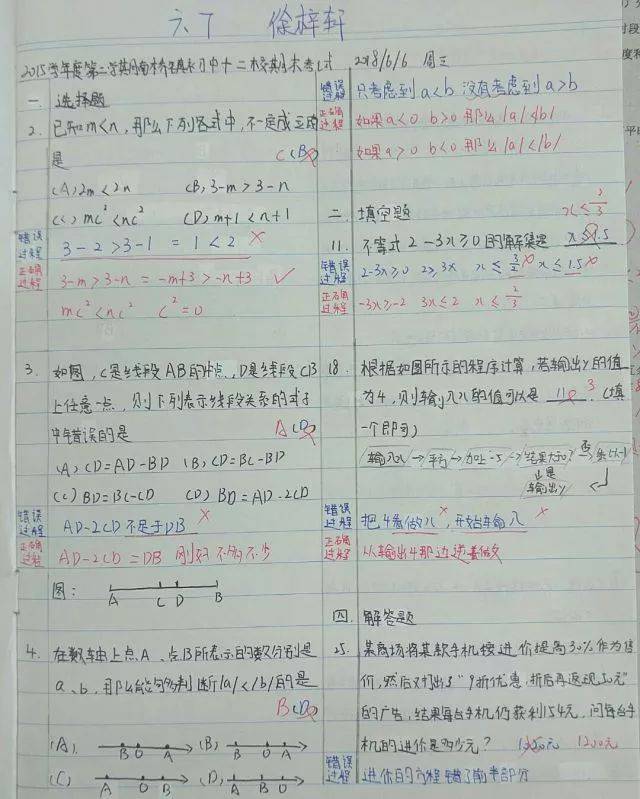 六丁 徐梓轩
2015学年度第二学期南桥镇初中十二校期末考试 2018/6/6 周三
一 选择题
2. 已知m<n,那么下列各式中,不一定成立的
是 C (B)
(A) 2m<2n (B) 3-m>3-n
(C) mc²<nc² (D) m+1<n+1
错误过程 3-2>3-1 = 1<2 ×
正确过程 3-m>3-n = -m+3>-n+3 ✓
mc²<nc² c²=0
3. 如图,C是线段AB的中点,D是线段CB
上任意一点,则下列表示线段关系的式子
中错误的是 A (D)
(A) CD=AD-BD (B) CD=BC-BD
(C) BD=BC-CD (D) BD=AD-2CD
错误过程 AD-2CD 不是于DB ×
正确过程 AD-2CD=DB 刚好 不多不少
图:
A C D B
4. 在数轴上点A、点B所表示的数分别是
a、b,那么能够判断|a|<|b|的是
B (D)
(A) B O A (B) B O A
(C) A O B (D) A B O
错误过程 只考虑到a<b 没有考虑到a>b
正确过程 如果a<0 b>0 那么|a|<|b|
如果a>0 b<0 那么|a|<|b|
二、填空题
x≤2/3
11. 不等式2-3x≥0的解集是 x≤1.5
错误过程 2-3x≥0 2≥3x x≤3/2 × x≤1.5 ×
正确过程 -3x≥-2 3x≤2 x≤2/3
18. 根据如图所示的程序计算,若输出y的值
为4,则输入x的值可以是 3 (填
一个即可)
输入x→平方→加上-5→结果大于0? 否→乘以-1
是
输出y
错误过程 把4看做x ×,开始输入 ×
正确过程 从输出4那边逆着做
四. 解答题
25. 某商场将某款手机按进价提高30%作为售
价,然后又打出了"9折优惠,折后再返现50元"
的广告,结果每台手机仍获利154元,问每台手
机的进价是多少元? 1200元
错误过程 进价的方程错了前半部分